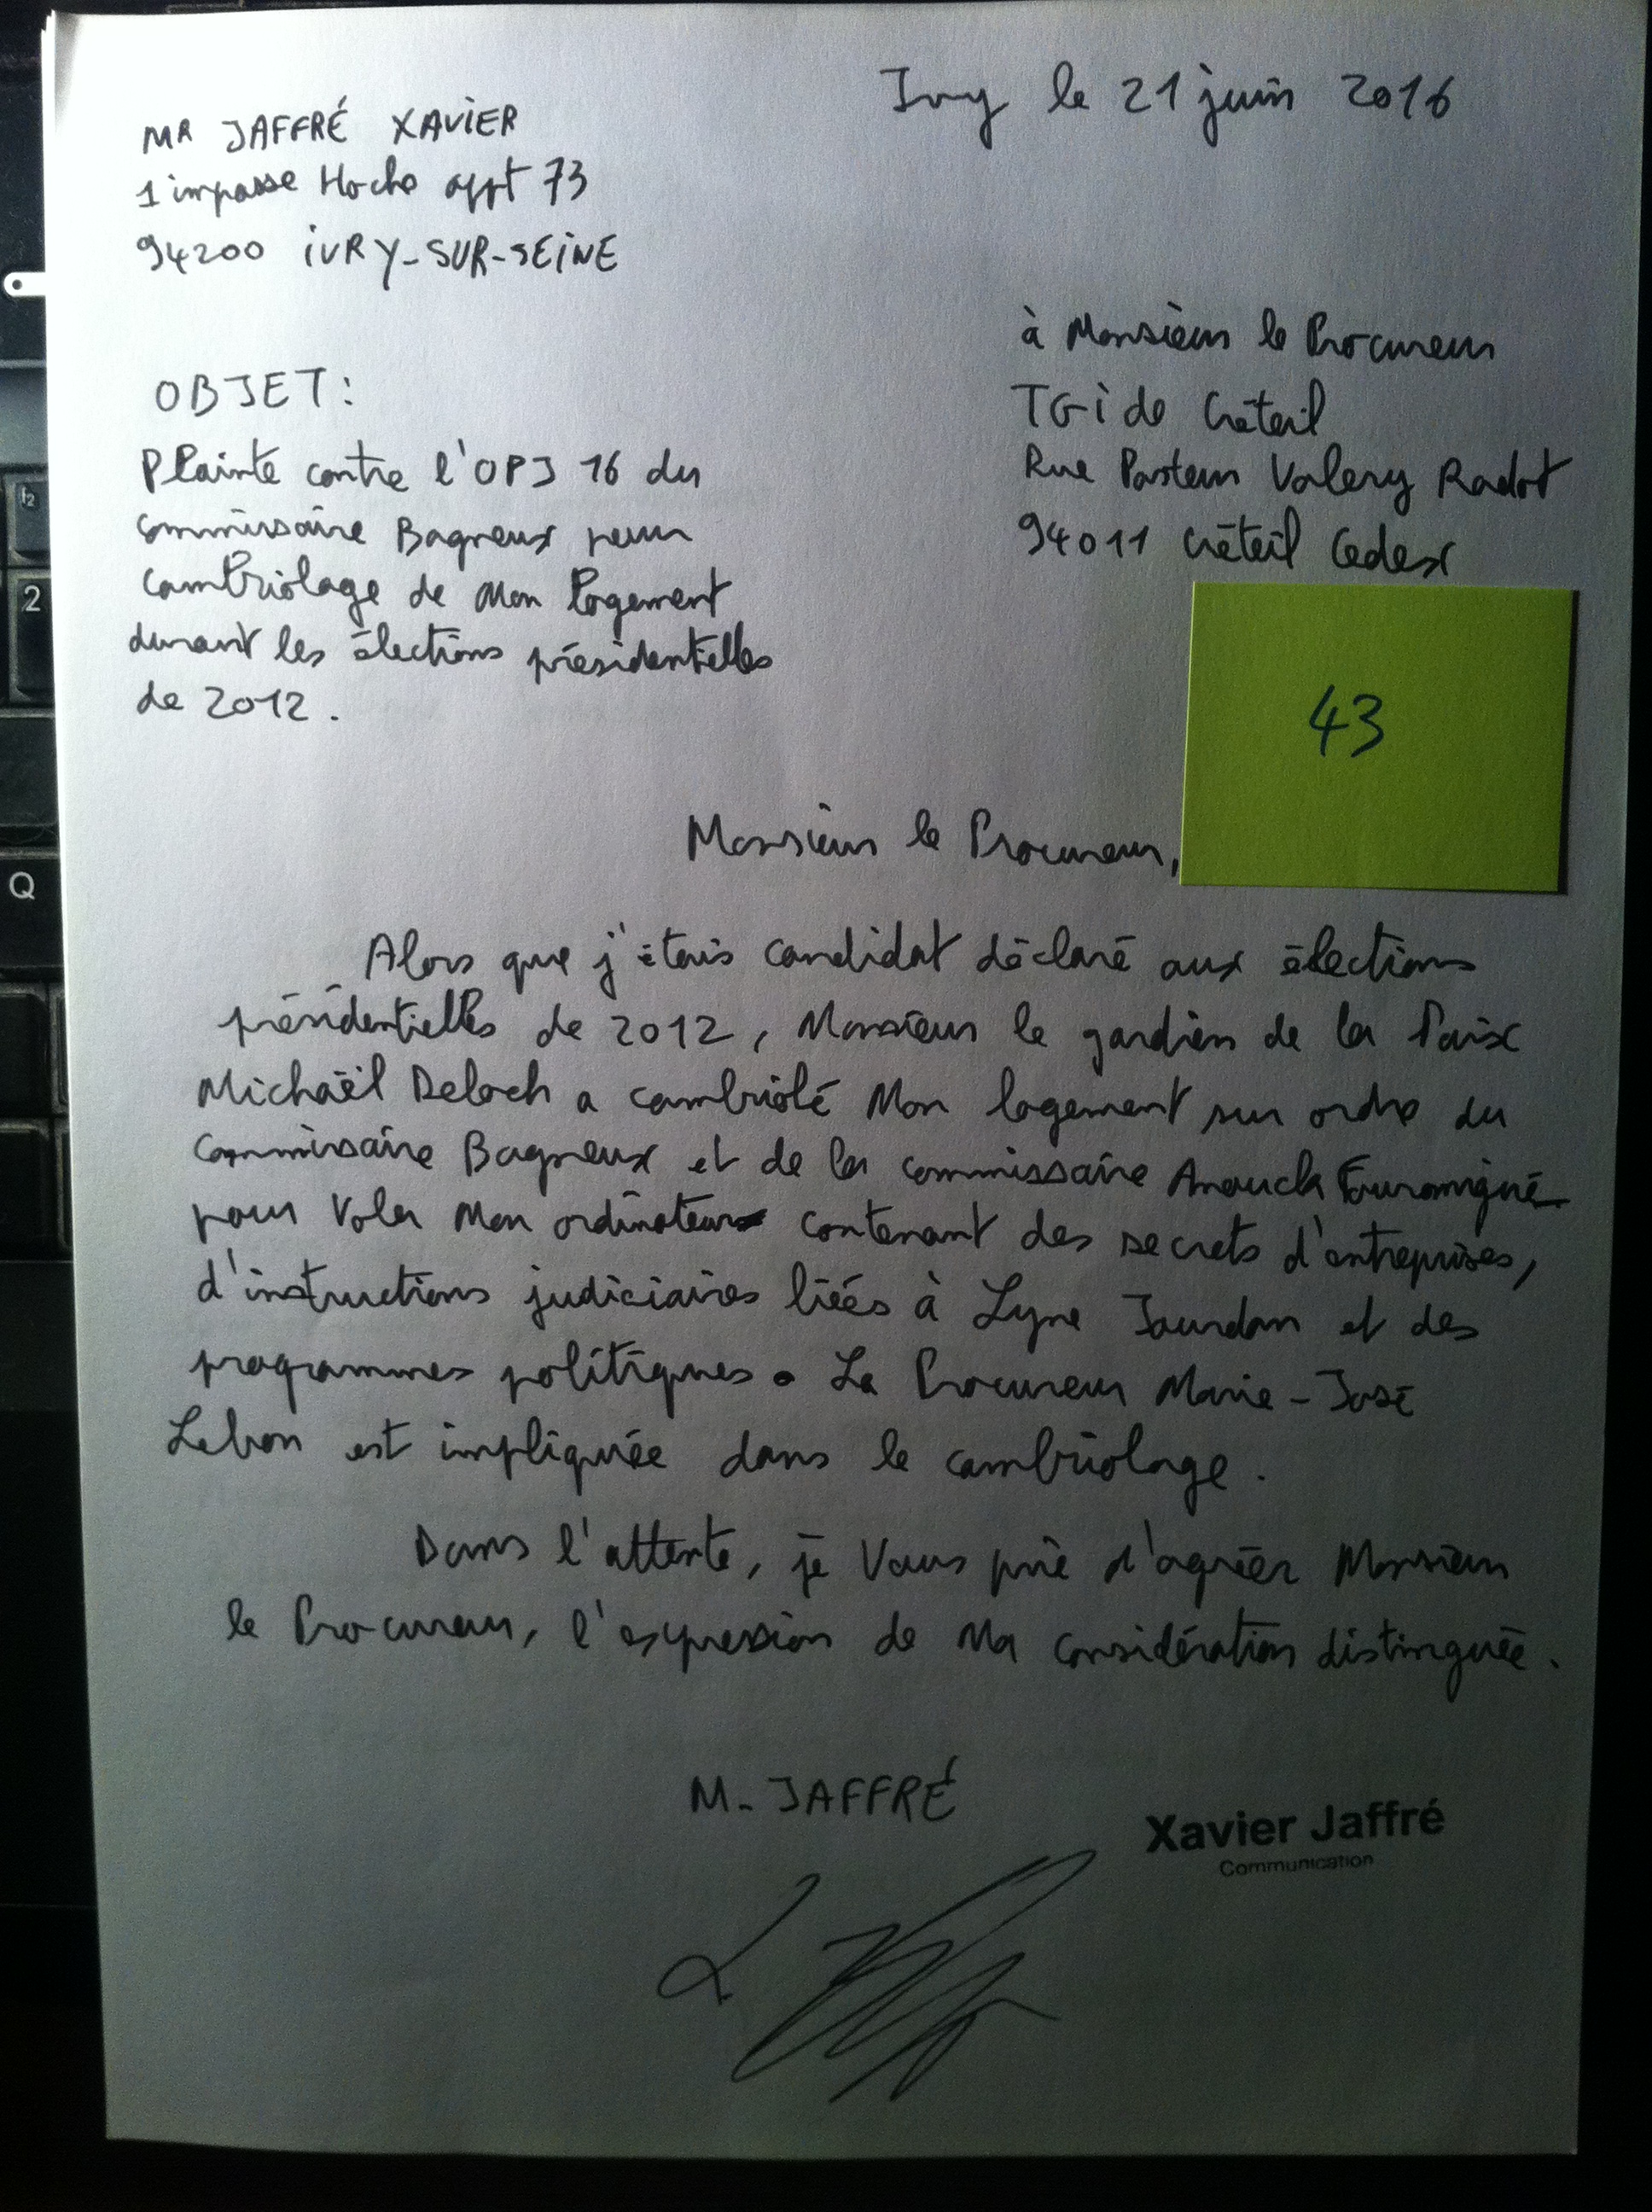 Ivry le 21 juin 2016
MR JAFFRÉ XAVIER
1 impasse Hoche appt 73
94200 IVRY-SUR-SEINE
à Monsieur le Procureur
TGI de Créteil
Rue Pasteur Valery Radot
94011 Créteil Cedex
OBJET:
Plainte contre l'OPJ 16 du
commissaire Bagneux pour
cambriolage de Mon logement
durant les élections présidentielles
de 2012.
43
Monsieur le Procureur,
Alors que j'étais candidat déclaré aux élections
présidentielles de 2012, Monsieur le gardien de la Paix
Michaël Deloch a cambriolé Mon logement sur ordre du
Commissaire Bagneux et de la commissaire Anouck Fouramigné
pour Voler Mon ordinateur contenant des secrets d'entreprises,
d'instructions judiciaires liées à Lyne Jourdan et des
programmes politiques. La Procureur Marie-José
Lebon est impliquée dans le cambriolage.
Dans l'attente, je Vous prie d'agréer Monsieur
le Procureur, l'expression de Ma considération distinguée.
M. JAFFRÉ
Xavier Jaffré
Communication
f2
2
Q